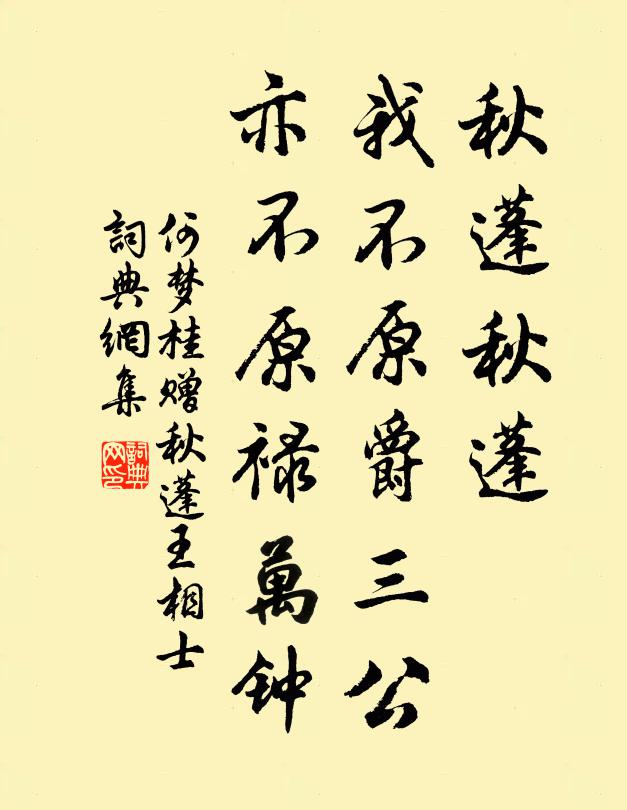 秋蓬秋蓬
我不原爵三公
亦不原禄萬钟
何梦桂赠秋蓬王相士
詞典網集
詞典网印